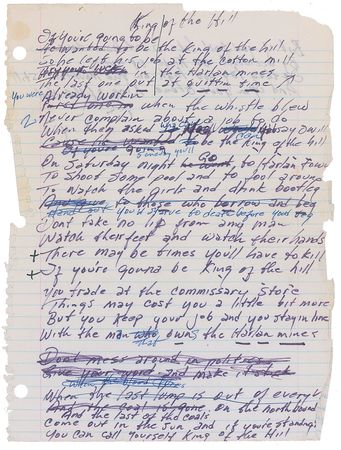 King of the Hill
If you're going to be
So wanted to be the king of the hill
So he left his job at the cotton mill
in the Harlan mines
The last one out at quittin time
You were
Already workin
first one in when the whistle blew
Never complain about a job to do
When they asked you say I will
to be the king of the hill
If you're gonna
someday you'll
On Saturday night Go to Harlan Town
To shoot some pool and to fool around
To watch the girls and drink bootleg
And give to those who borrow and beg
you'd starve to death before you
Don't take no lip from any man
Watch their feet and watch their hands
+ There may be times you'll have to kill
+ If you're gonna be King of the hill
You trade at the commissary store
Things may cost you a little bit more
But you keep your job and you stay in line
With the man who owns the Harlan mines
that
Don't mess around in politics
Give your word and make it stick
When the last lump is out of every
And the coal is gone, on the northbound
And the last of the coals
come out in the sun and if you're standing
You can call yourself King of the Hill